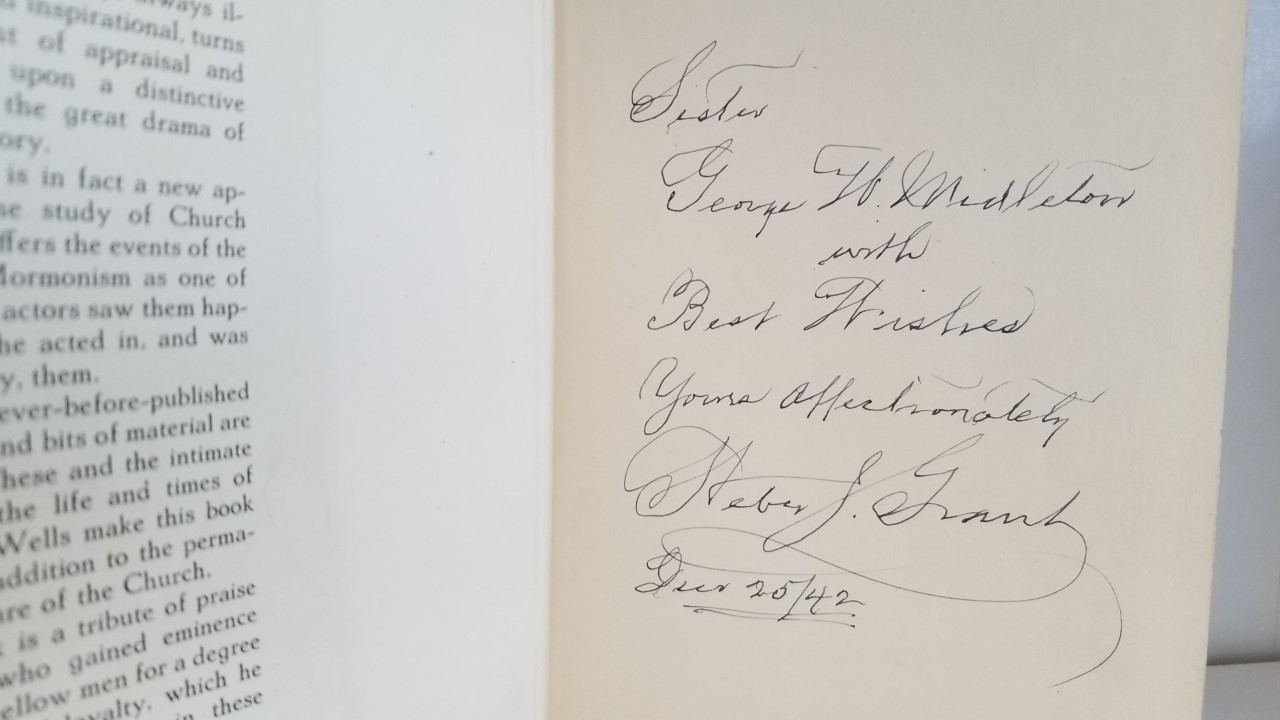 ways il-
inspirational, turns
of appraisal and
upon a distinctive
the great drama of
ory.
is in fact a new ap-
study of Church
ffers the events of the
Mormonism as one of
actors saw them hap-
he acted in, and was
y, them.
ever-before-published
nd bits of material are
hese and the intimate
the life and times of
Wells make this book
addition to the perma-
re of the Church.
is a tribute of praise
who gained eminence
ellow men for a degree
loyalty, which he
in these
Sister
George W. Middleton
with
Best Wishes
Yours affectionately
Heber J. Grant
Dec 25/42